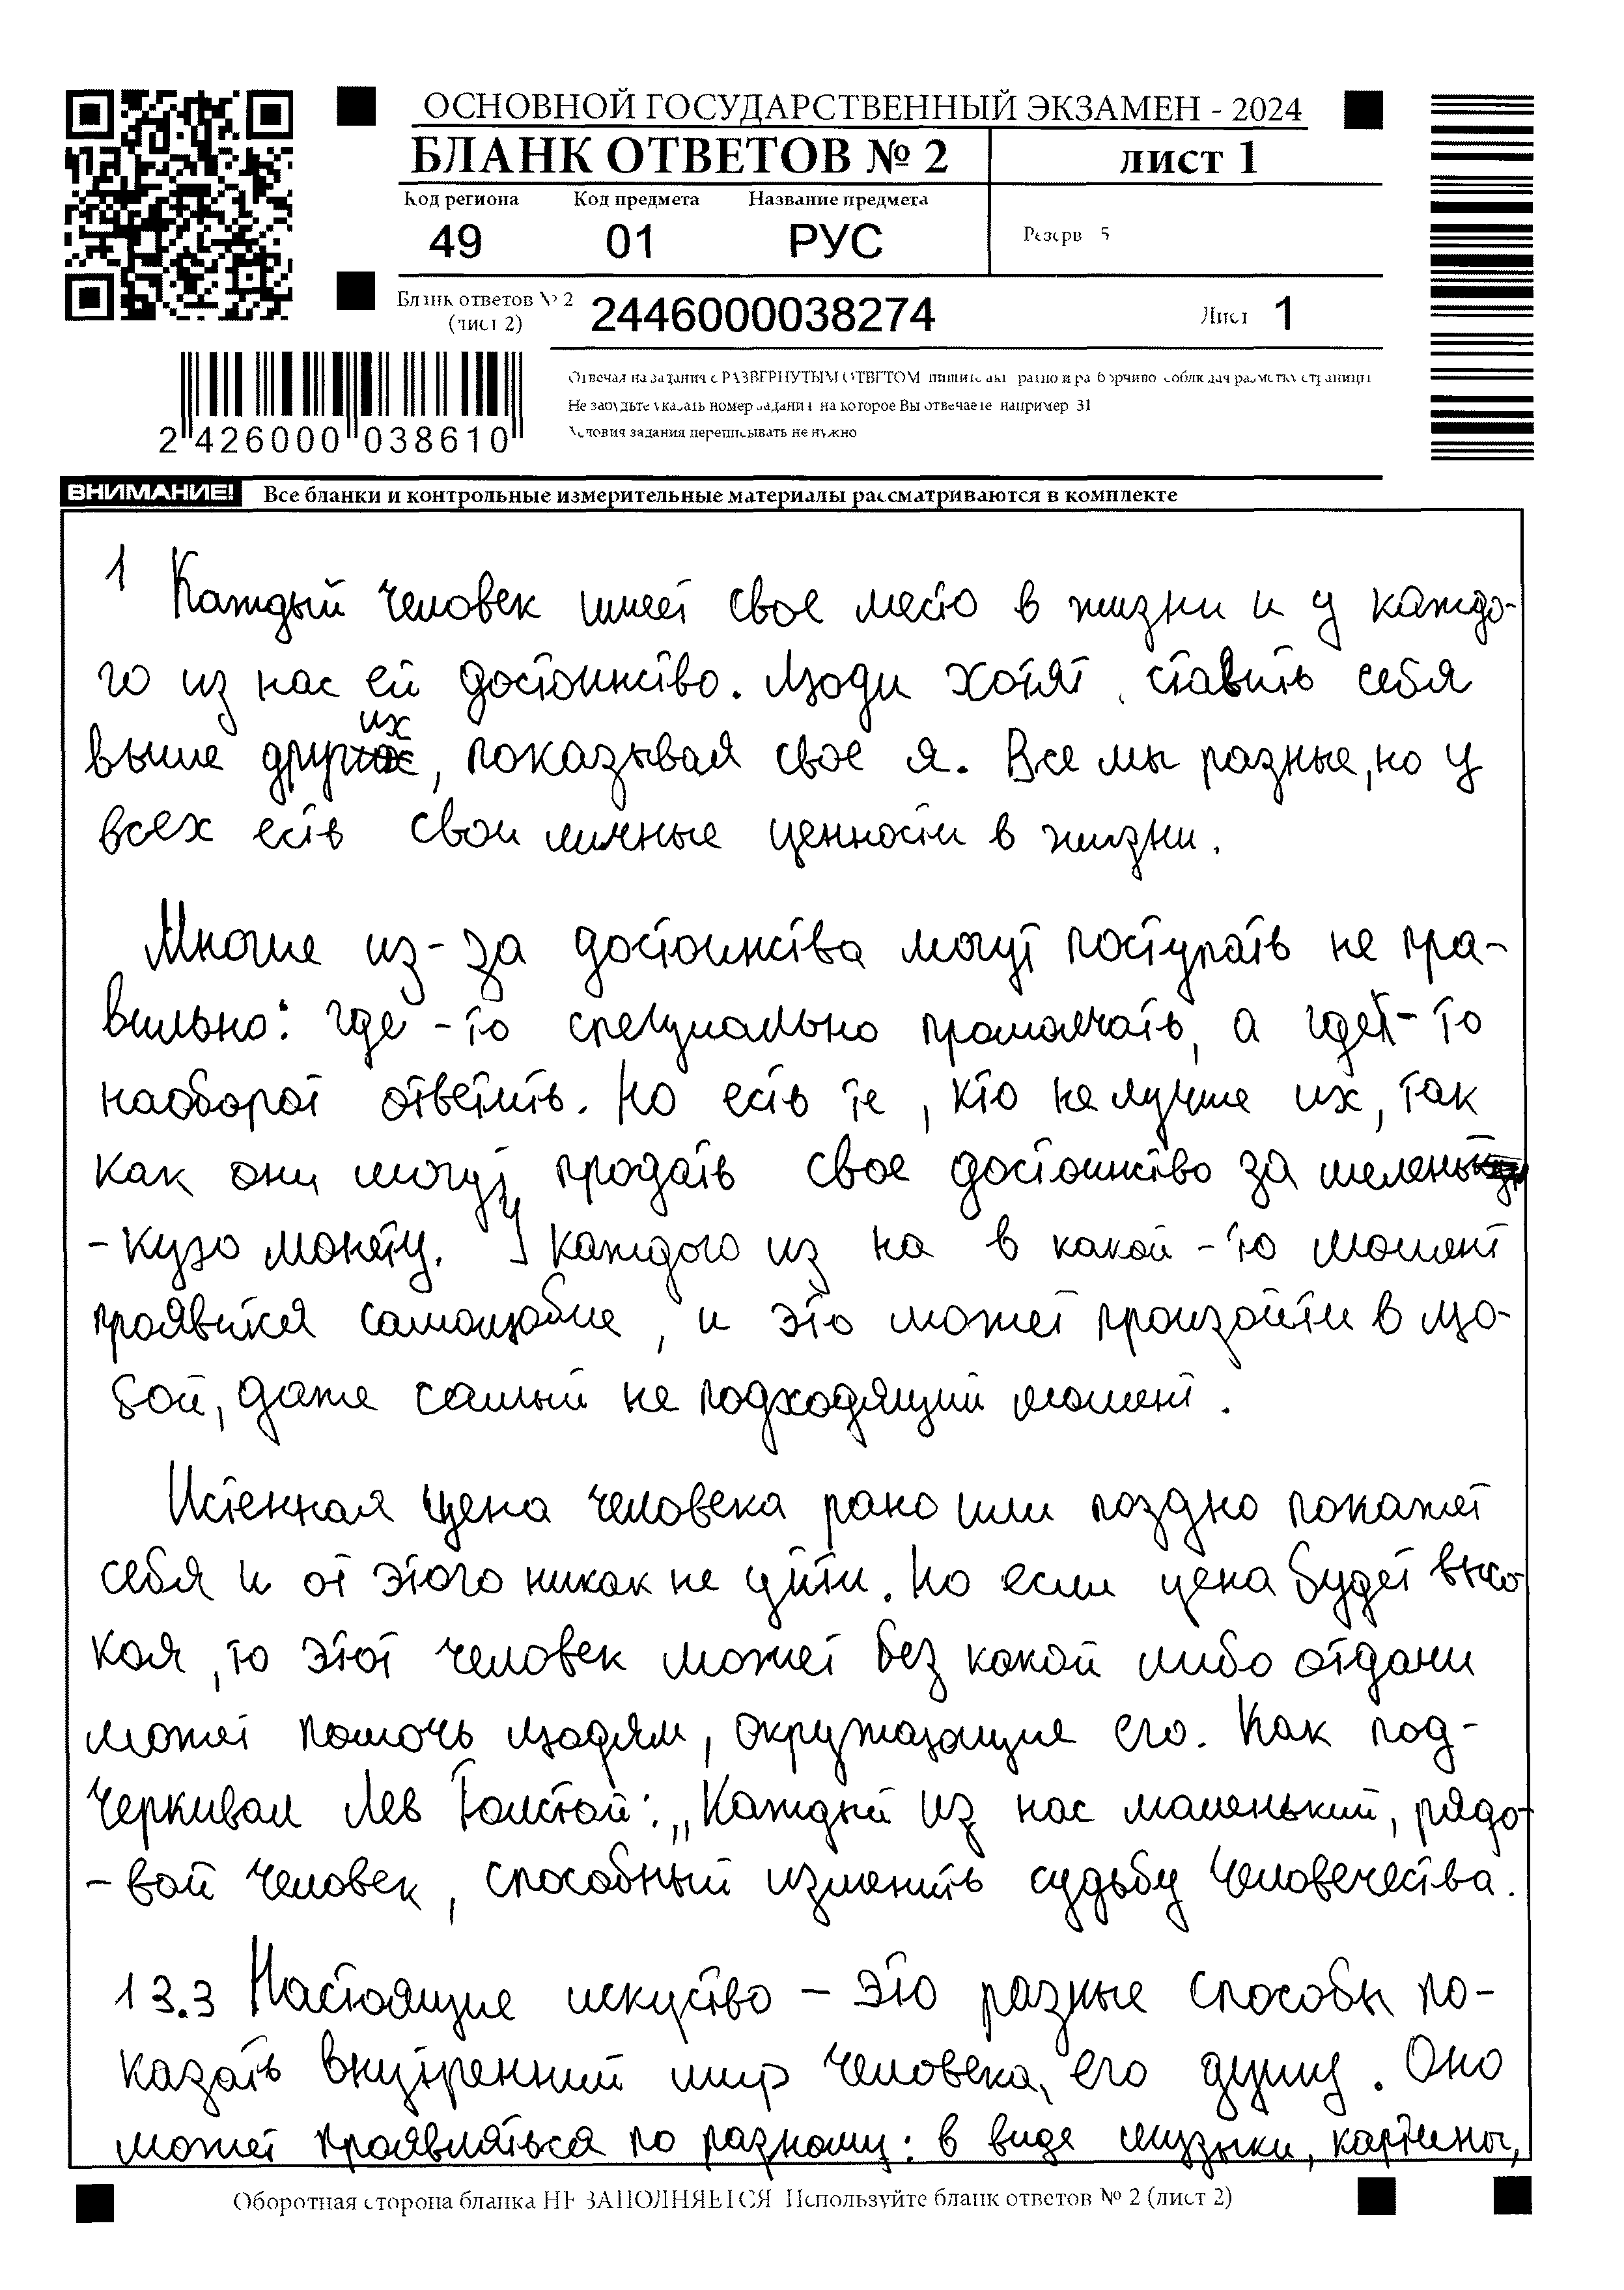 ОСНОВНОЙ ГОСУДАРСТВЕННЫЙ ЭКЗАМЕН - 2024
БЛАНК ОТВЕТОВ № 2
лист 1
Код региона Код предмета Название предмета
49 01 РУС
Резерв 5
Бланк ответов № 2
(лист 2)
2446000038274
Лист 1
2 426000 038610
Отвечая на задания с РАЗВЕРНУТЫМ ОТВЕТОМ пишите аккуратно и разборчиво соблюдая разметку страницы
Не забудьте указать номер задания на которое Вы отвечаете например 31
Условия задания переписывать не нужно
ВНИМАНИЕ! Все бланки и контрольные измерительные материалы рассматриваются в комплекте
1 Каждый человек имеет свое место в жизни и у каждо-
го из нас ей достоинство. Люди хотят ставить себя
выше других, показывая свое я. Все мы разные, но у
всех есть свои личные ценности в жизни.
Многие из-за достоинства могут поступать не пра-
вильно: где-то специально промолчать, а где-то
наоборот ответить. Но есть те, кто не лучше их, так
как они могут продать свое достоинство за мелень
-кую монету. У каждого из на в какой-то момент
проявится самолюбие, и это может произойти в лю-
бой, даже самый не подходящий момент.
Истенная цена человека рано или поздно покажет
себя и от этого никак не уйти. Но если цена будет высо
кая, то этот человек может без какой либо отдачи
может помочь людям, окружающие его. Как под-
черкивал Лев Толстой: „Каждый из нас маленький, рядо
-вой человек, способный изменить судьбу человечества.
13.3 Настоящие искуство – это разные способы по-
казать внутренний мир человека, его душу. Оно
может проявляться по разному: в виде музыки, картины,
Оборотная сторона бланка НЕ ЗАПОЛНЯЕТСЯ Используйте бланк ответов № 2 (лист 2)